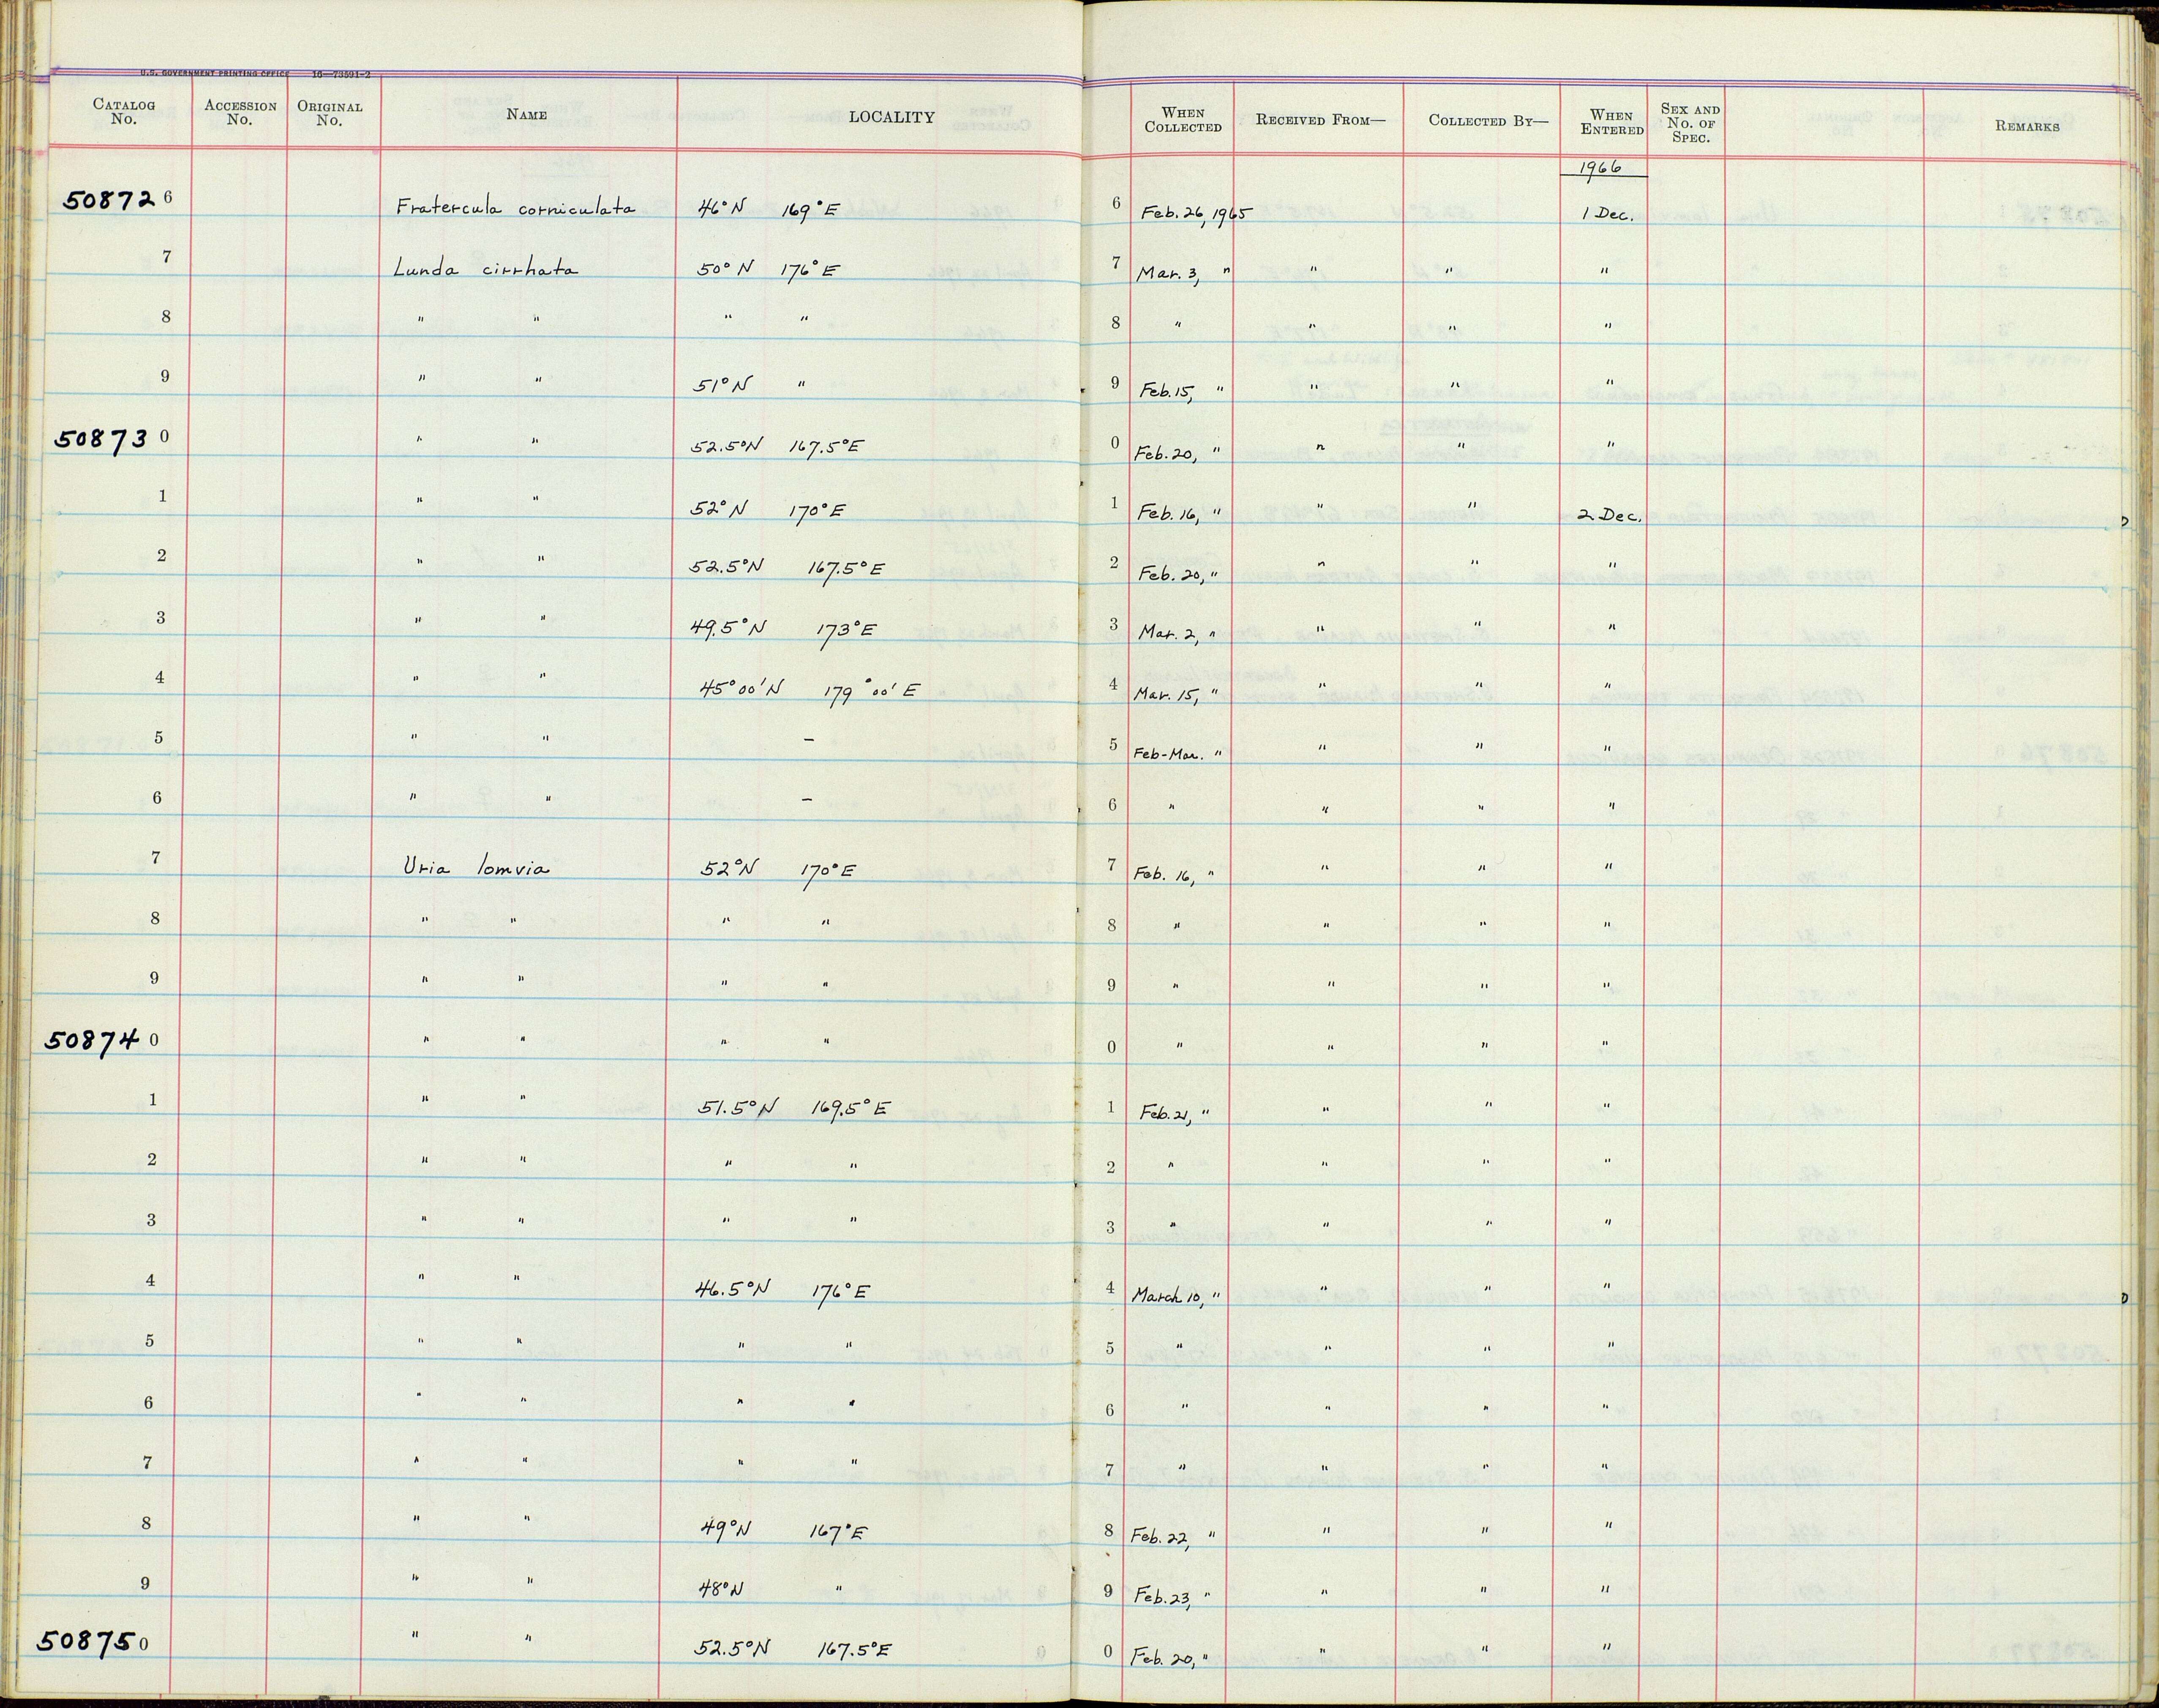 U.S. GOVERNMENT PRINTING OFFICE 16—73591-2
CATALOG No. ACCESSION No. ORIGINAL No. NAME LOCALITY WHEN COLLECTED RECEIVED FROM— COLLECTED BY— WHEN ENTERED SEX AND No. OF SPEC. REMARKS
1966
50872 6 Fratercula corniculata 46°N 169°E 6 Feb. 26, 1965 1 Dec.
7 Lunda cirrhata 50°N 176°E 7 Mar. 3, " " " "
8 " " " " 8 " " " "
9 " " 51°N " 9 Feb. 15, " " " "
50873 0 " " 52.5°N 167.5°E 0 Feb. 20, " " " "
1 " " 52°N 170°E 1 Feb. 16, " " " 2 Dec.
2 " " 52.5°N 167.5°E 2 Feb. 20, " " " "
3 " " 49.5°N 173°E 3 Mar. 2, " " " "
4 " " 45°00'N 179°00'E 4 Mar. 15, " " " "
5 " " – 5 Feb-Mar. " " " "
6 " " – 6 " " " "
7 Uria lomvia 52°N 170°E 7 Feb. 16, " " " "
8 " " " " 8 " " " "
9 " " " " 9 " " " "
50874 0 " " " " 0 " " " "
1 " " 51.5°N 169.5°E 1 Feb. 21, " " " "
2 " " " " 2 " " " "
3 " " " " 3 " " " "
4 " " 46.5°N 176°E 4 March 10, " " " "
5 " " " " 5 " " " "
6 " " " " 6 " " " "
7 " " " " 7 " " " "
8 " " 49°N 167°E 8 Feb. 22, " " " "
9 " " 48°N " 9 Feb. 23, " " " "
50875 0 " " 52.5°N 167.5°E 0 Feb. 20, " " " "